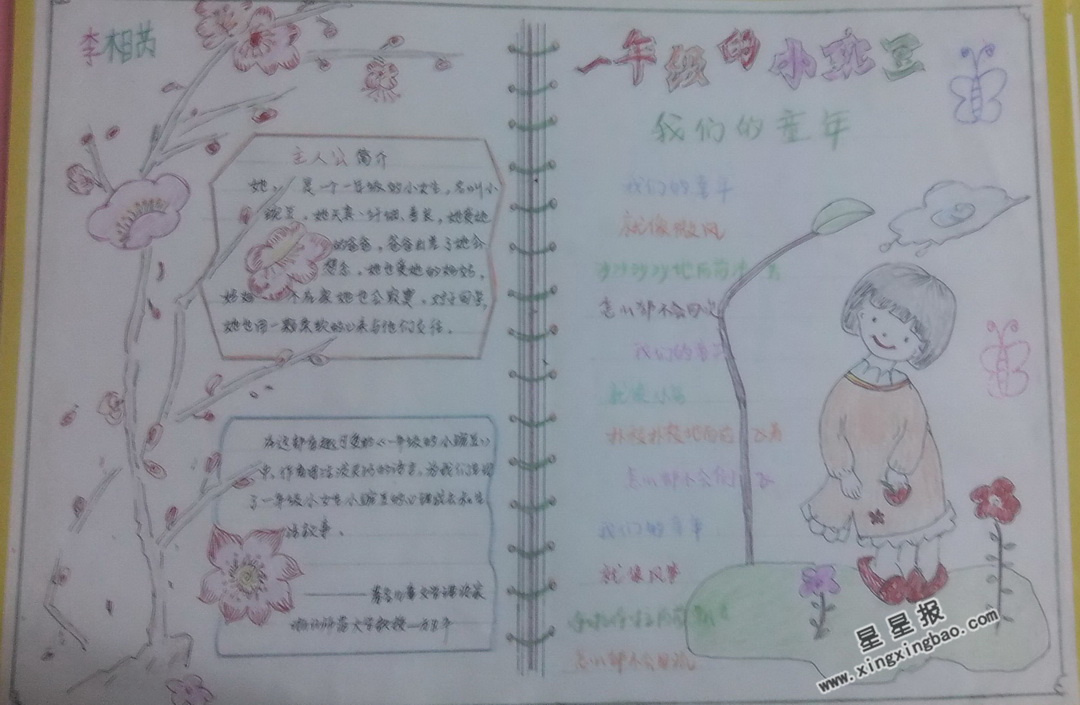 李相芮
主人公简介
她，是一个一年级的小女生，名叫小
豌豆，她天真、仔细、善良，她爱她
的爸爸，爸爸出差了她会
想念，她也爱她的妈妈，
妈妈一不在家她也会寂寞，对于同学，
她也用一颗柔软的心来与他们交往。
在这部童趣可爱的《一年级的小豌豆》
中，作者用活泼灵活的语言，为我们讲述
了一年级小女生小豌豆的心理成长和生
活故事。
著名儿童文学评论家
师范大学教授
一年级的小豌豆
我们的童年
我们的童年
就像微风
沙沙沙地向前
怎么都不会
我们的童
就像小鸟
扑棱扑棱地向前飞着
怎么都不会
我们的童年
就像风筝
怎么都不会
星星报
www.xingxingbao.com